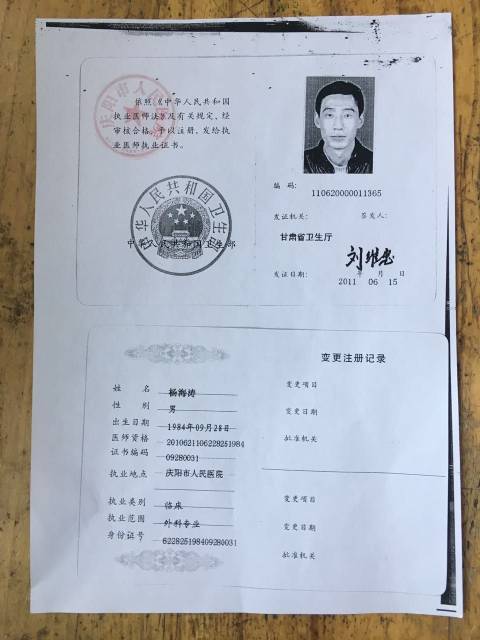 依照《中华人民共和国
执业医师法》及有关规定，经
审核合格，予以注册，发给执
业医师执业证书。
庆阳市人民
中华人民共和国卫生部
中华人民共和国卫生部
编码：
110620000011365
发证机关： 签发人：
甘肃省卫生厅
发证日期： 年 月 日
2011 06 15
姓 名 杨海涛
性 别 男
出生日期 1984年09月28日
医师资格 2010621106228251984
证书编码 09280031
执业地点 庆阳市人民医院
执业类别 临床
执业范围 外科专业
身份证号 622825198409280031
变更注册记录
变更项目
变更日期
批准机关
变更项目
变更日期
批准机关